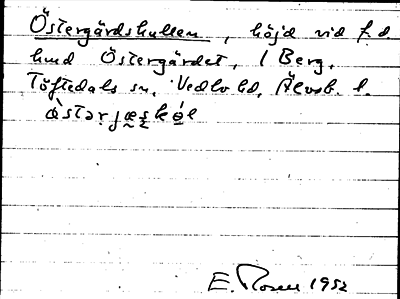 Östergärdskullen, höjd vid f.d
hmd Östergärdet, 1 Berg,
Töftedals sn, Vedbo hd, Älvsb. l.
E. Rosen 1952